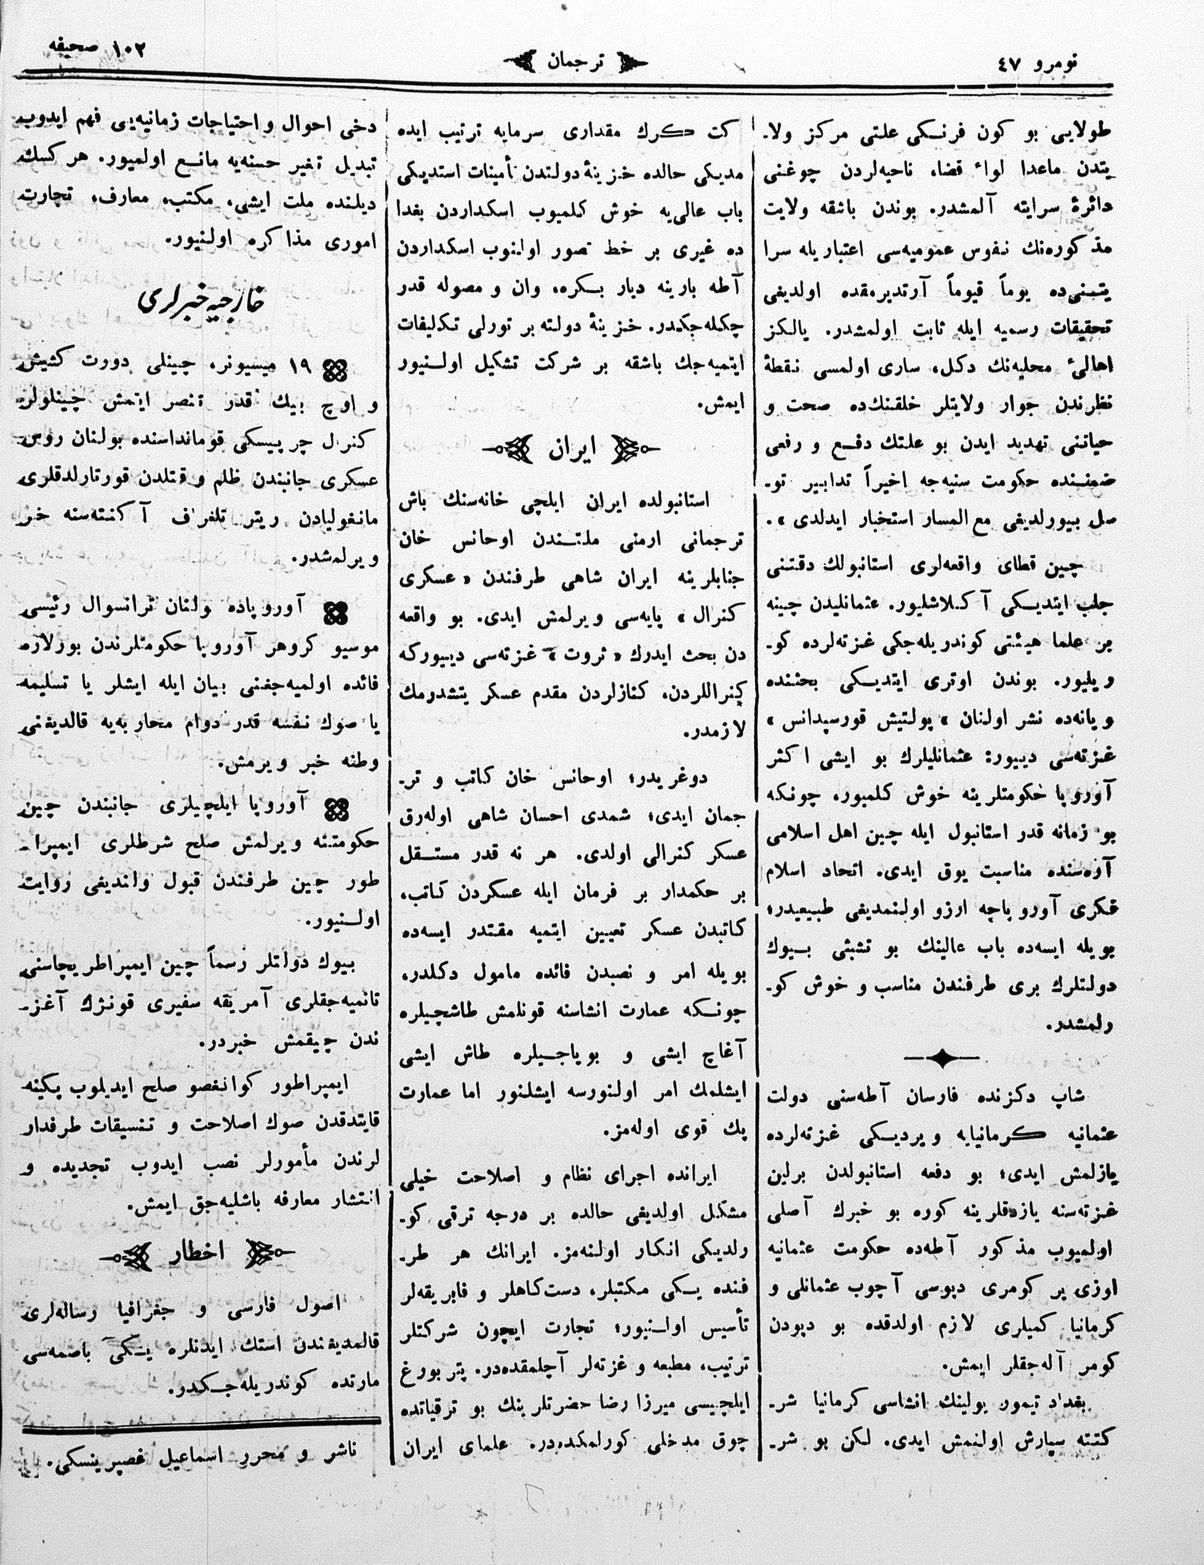 نومرو ٤٧
ترجمان
١٠٢ صحیفه
طولایی بو كون فرنكی علتی مركز ولا-
یتدن ماعدا لواء قضا، ناحیه‌لردن چوغنی
دائرهٔ سرایته آلمشدر. بوندن باشقه ولایت
مذكوره‌نك نفوس عمومیه‌سی اعتباریله سرا
یتینی‌ده یوماً قیوماً آرتدیرمقده اولدیغی
تحقیقات رسمیه ایله ثابت اولمشدر. یالكز
اهالیٔ محلیه‌نك دكل، ساری اولمسی نقطهٔ
نظرندن جوار ولایتلر خلقنك‌ده صحت و
حیاتنی تهدید ایدن بو علتك دفع و رفعی
ضمننده حكومت سنیه‌جه اخیراً تدابیر تو-
صل بیورلدیغی مع المسار استخبار ایدلدی ».
چین قطای واقعه‌لری استانبولك دقتنی
جلب ایتدیكی آكلاشلیور. عثمانلیدن چینه
بر علما هیئتی كوندریله‌جكی غزته‌لرده كو-
ویلیور. بوندن اوتری ایتدیكی بحثنده
ویانه‌ده نشر اولنان « پولتیش قورسپدانس »
غزته‌سی دیپور: عثمانلیلرك بو ایشی اكثر
آوروپا حكومتلرینه خوش كلمیور، چونكه
بو زمانه قدر استانبول ایله چین اهل اسلامی
آره‌سنده مناسبت یوق ایدی. اتحاد اسلام
فكری آوروپاچه ارزو اولنمدیغی طبیعیدر؛
بویله ایسه‌ده باب عالینك بو تشبثی بیوك
دولتلرك بری طرفندن مناسب و خوش كو-
رلمشدر.
شاپ دكزنده فارسان آطه‌سنی دولت
عثمانیه كرمانیایه ویردیكی غزته‌لرده
یازلمش ایدی؛ بو دفعه استانبولدن برلین
غزته‌سنه یازدقلرینه كوره بو خبرك آصلی
اولمیوب مذكور آطه‌ده حكومت عثمانیه
اوزی بر كومری دیوسی آچوب عثمانلی و
كرمانیا كمیلری لازم اولدقده بو دیودن
كومر آله‌جقلر ایمش.
بغداد تیمور یولینك انشاسی كرمانیا شر-
كتنه سپارش اولنمش ایدی. لكن بو شر-
كت كرك مقداری سرمایه ترتیب ایده
مدیكی حالده خزینهٔ دولتدن تأمینات استدیكی
باب عالی‌یه خوش كلمیوب اسكداردن بغدا
ده غیری بر خط تصور اولنوب اسكداردن
آطه بارینه دیار بكره، وان و مصوله قدر
چكله‌جكدر. خزینهٔ دولته بر تورلی تكلیفات
ایتمیه‌جك باشقه بر شركت تشكیل اولنیور
ایمش.
ایران
استانبولده ایران ایلچی خانه‌سنك باش
ترجمانی ارمنی ملتندن اوحانس خان
جنابلرینه ایران شاهی طرفندن « عسكری
كنرال » پایه‌سی ویرلمش ایدی. بو واقعه
دن بحث ایدرك « ثروت » غزته‌سی دیپوركه
كنراللردن، كتازلردن مقدم عسكر یتشدرمك
لازمدر.
دوغریدر؛ اوحانس خان كاتب و تر-
جمان ایدی؛ شمدی احسان شاهی اوله‌رق
عسكر كنرالی اولدی. هر نه قدر مستقل
بر حكمدار بر فرمان ایله عسكردن كاتب،
كاتبدن عسكر تعیین ایتمیه مقتدر ایسه‌ده
بویله امر و نصبدن فائده مامول دكلدر،
چونكه عمارت انشاسنه قونلمش طاشچیلره
آغاچ ایشی و بویاجیلره طاش ایشی
ایشلمك امر اولنورسه ایشلنور اما عمارت
پك قوی اوله‌مز.
ایرانده اجرای نظام و اصلاحت خیلی
مشكل اولدیغی حالده بر درجه ترقی كو-
رلدیكی انكار اولنه‌مز. ایرانك هر طر-
فنده یكی مكتبلر، دست‌كاهلر و فابریقه‌لر
تأسیس اولنیور؛ تجارت ایچون شركتلر
ترتیب، مطبعه و غزته‌لر آچلمقده‌در. پتربورغ
ایلچیسی میرزا رضا حضرتلرینك بو ترقیاتده
چوق مدخلی كورلمكده‌در. علمای ایران
دخی احوال و احتیاجات زمانیه‌یی فهم ایدوب
تبدیل تغیر حسنه‌یه مانع اولمیور. هر كسك
دیلنده ملت ایشی، مكتب، معارف، تجارت
اموری مذاكره اولنیور.
خارجیه خبرلری
١٩ میسیونر، چینلی دورت كشیش
و اوچ بیك قدر تنصر ایتمش چینلولر
كنرال چرپیسكی قوماندا‌سنده بولنان روس
عسكری جانبندن ظلم و قتلدن قورتارلدقلری
مانغولیادن ریتر تلغراف آكنته‌سنه خبر
ویرلمشدر.
آوروپاده ولنان ترانسوال رئیسی
موسیو كروهر آوروپا حكومتلرندن بوزلاره
فائده اولمیه‌جغنی بیان ایله ایشلر یا تسلیمه
یا صوك نفسه قدر دوام محاربه‌یه قالدیغنی
وطنه خبر ویرمش.
آوروپا ایلچیلری جانبندن چین
حكومتنه ویرلمش صلح شرطلری ایمپرا-
طور چین طرفندن قبول ولندیغی روایت
اولنیور.
بیوك دولتلر رسماً چین ایمپراطریچاسنی
تانمیه‌جقلری آمریقه سفیری قونژك آغز-
ندن چیقمش خبردر.
ایمپراطور كوانغصو صلح ایدیلوب پكینه
قایتدقدن صوك اصلاحت و تنسیقات طرفدار
لرندن مأمورلر نصب ایدوب تجدیده و
انتشار معارفه باشلیه‌جق ایمش.
اخطار
اصول فارسی و جغرافیا رساله‌لری
قالمدیغندن استك ایدنلره یكی باصمه‌سی
مارتده كوندریله‌جكدر.
ناشر و محرر اسماعیل غصپرینسكی.